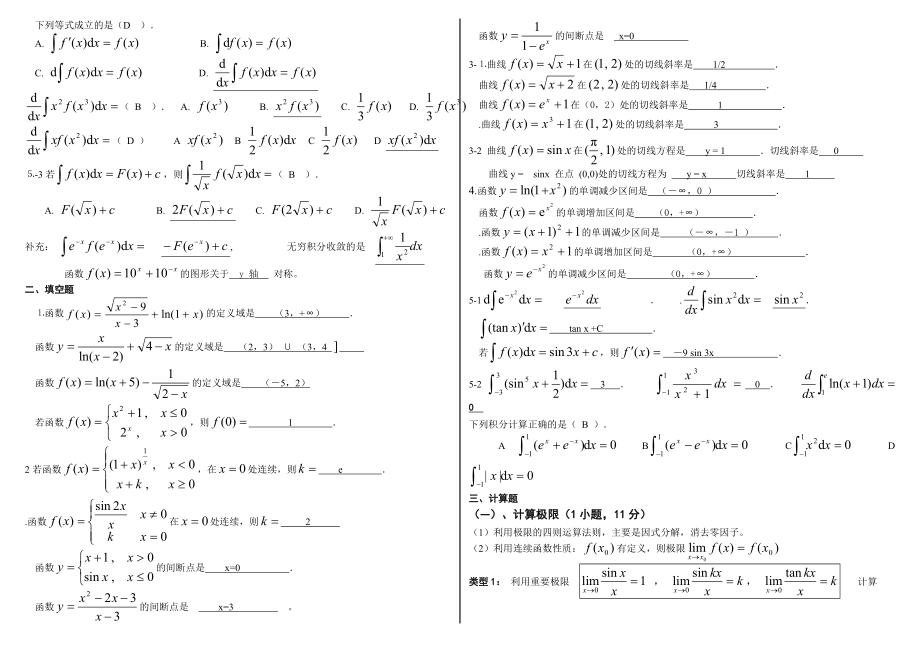 下列等式成立的是（D ）．
A. ∫f′(x)dx = f(x) B. ∫df(x) = f(x)
C. d∫f(x)dx = f(x) D. d/dx ∫f(x)dx = f(x)
d/dx ∫x²f(x³)dx =（ B ）． A. f(x³) B. x²f(x³) C. 1/3 f(x) D. 1/3 f(x³)
d/dx ∫xf(x²)dx =（ D ） A xf(x²) B 1/2 f(x)dx C 1/2 f(x) D xf(x²)dx
5.-3 若∫f(x)dx = F(x) + c，则∫1/√x f(√x)dx =（ B ）．
A. F(√x) + c B. 2F(√x) + c C. F(2√x) + c D. 1/√x F(√x) + c
补充： ∫e⁻ˣ f(e⁻ˣ)dx = －F(e⁻ˣ) + c , 无穷积分收敛的是 ∫₁^{+∞} 1/x² dx
函数 f(x) = 10ˣ + 10⁻ˣ 的图形关于 y 轴 对称。
二、填空题
1.函数 f(x) = √(x² − 9)/(x − 3) + ln(1 + x) 的定义域是 （3，+∞） ．
函数 y = x/ln(x − 2) + √(4 − x) 的定义域是 （2，3） ∪ （3，4 ]
函数 f(x) = ln(x + 5) − 1/√(2 − x) 的定义域是 （－5，2）
若函数 f(x) = { x² + 1， x ≤ 0 ; 2ˣ， x > 0 ，则 f(0) = 1 ．
2 若函数 f(x) = { (1 + x)^{1/x}， x < 0 ; x + k， x ≥ 0 ，在 x = 0 处连续，则 k = e ．
.函数 f(x) = { sin 2x/x x ≠ 0 ; k x = 0 在 x = 0 处连续，则 k = 2
函数 y = { x + 1， x > 0 ; sin x， x ≤ 0 的间断点是 x=0 ．
函数 y = (x² − 2x − 3)/(x − 3) 的间断点是 x=3 。
函数 y = 1/(1 − eˣ) 的间断点是 x=0
3- 1.曲线 f(x) = √x + 1 在 (1, 2) 处的切线斜率是 1/2 ．
曲线 f(x) = √(x + 2) 在 (2, 2) 处的切线斜率是 1/4 ．
曲线 f(x) = eˣ + 1 在（0，2）处的切线斜率是 1 ．
.曲线 f(x) = x³ + 1 在 (1, 2) 处的切线斜率是 3 ．
3-2 曲线 f(x) = sin x 在 (π/2, 1) 处的切线方程是 y = 1 ．切线斜率是 0
曲线 y = sinx 在点 (0,0)处的切线方程为 y = x 切线斜率是 1
4.函数 y = ln(1 + x²) 的单调减少区间是 （－∞，0 ） ．
函数 f(x) = e^{x²} 的单调增加区间是 （0，+∞） ．
.函数 y = (x + 1)² + 1 的单调减少区间是 （－∞，-1 ） ．
.函数 f(x) = x² + 1 的单调增加区间是 （0，+∞） ．
函数 y = e^{−x²} 的单调减少区间是 （0，+∞） ．
5-1 d∫e^{−x²}dx = e^{−x²}dx ． .d/dx ∫sin x²dx = sin x² .
∫(tan x)′dx = tan x +C ．
若 ∫f(x)dx = sin 3x + c，则 f′(x) = －9 sin 3x ．
5-2 ∫₋₃³ (sin⁵x + 1/2)dx = 3 ． ∫₋₁¹ x³/(x² + 1) dx = 0 ． d/dx ∫₁ᵉ ln(x + 1)dx =
0
下列积分计算正确的是（ B ）．
A ∫₋₁¹(eˣ + e⁻ˣ)dx = 0 B ∫₋₁¹(eˣ − e⁻ˣ)dx = 0 C ∫₋₁¹x²dx = 0 D
∫₋₁¹| x |dx = 0
三、计算题
（一）、计算极限（1 小题，11 分）
（1）利用极限的四则运算法则，主要是因式分解，消去零因子。
（2）利用连续函数性质：f(x₀) 有定义，则极限 lim_{x→x₀} f(x) = f(x₀)
类型 1： 利用重要极限 lim_{x→0} sin x/x = 1 ， lim_{x→0} sin kx/x = k ， lim_{x→0} tan kx/x = k 计算